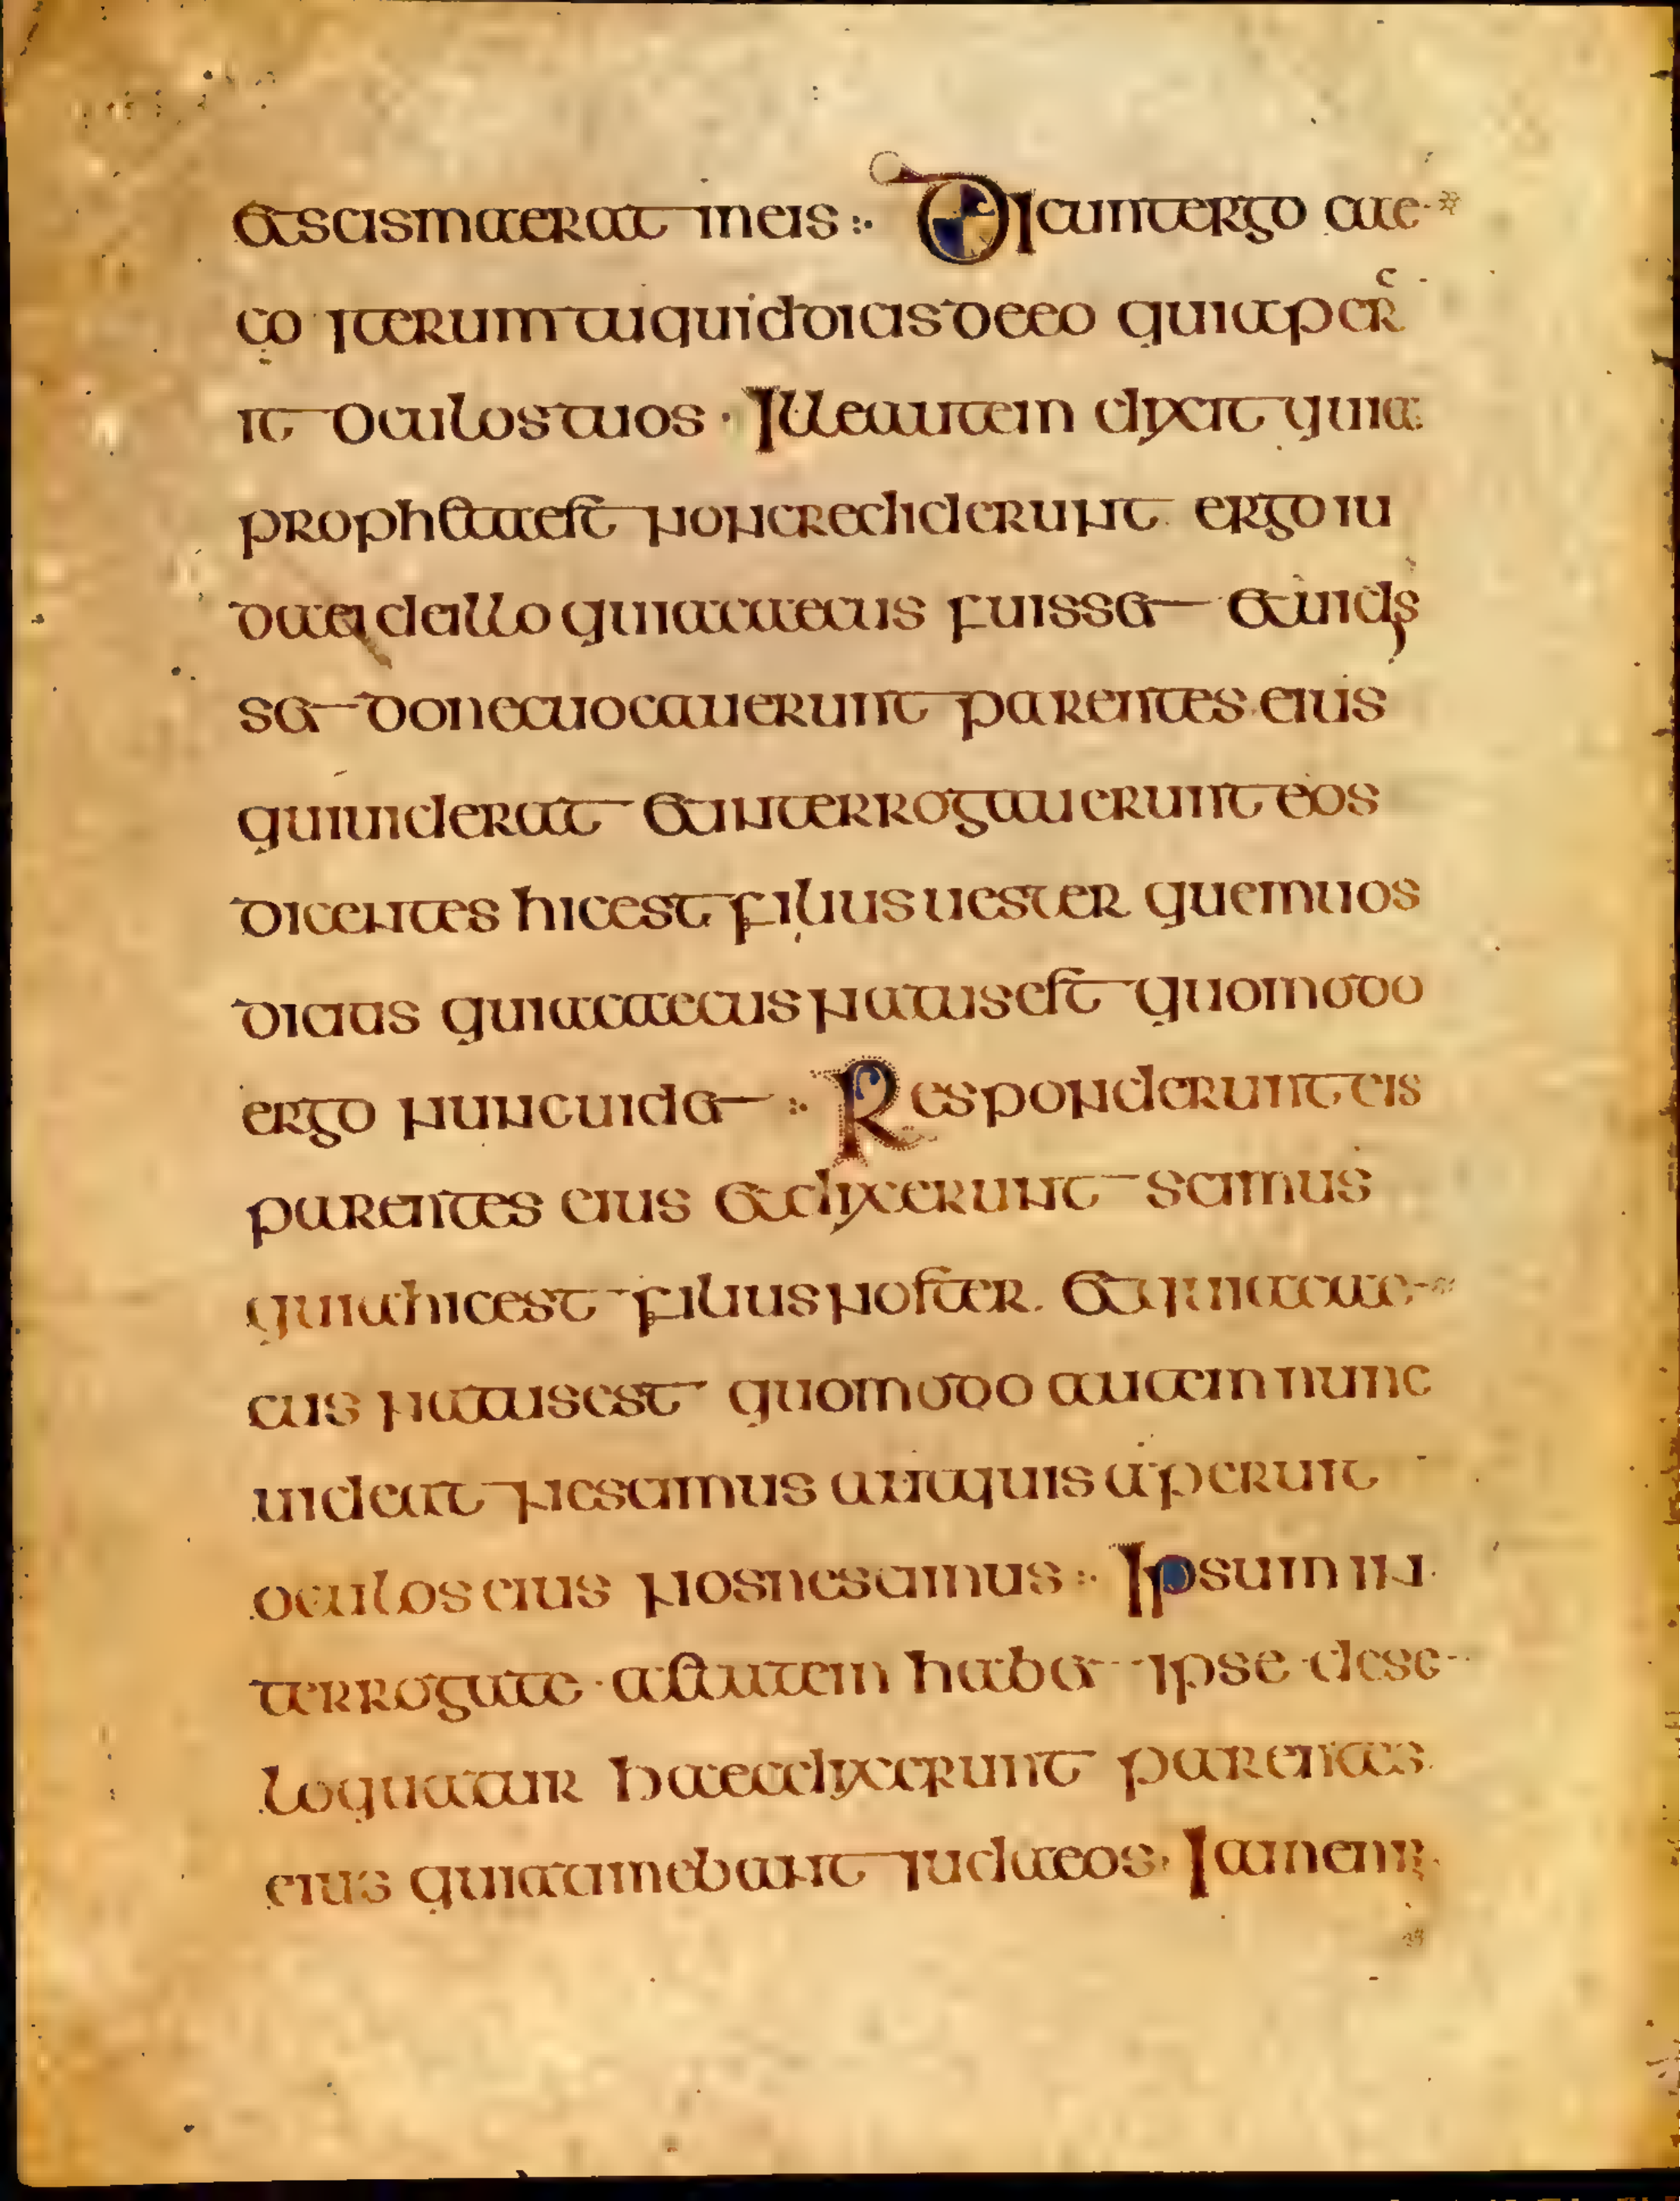 et scisma erat in eis :· Dicunt ergo cae
co iterum tu quid dicis de eo quia aper
it oculos tuos · Ille autem dixit quia
propheta est non crediderunt ergo iu
daei de illo quia caecus fuisset et uidis
set donec uocauerunt parentes eius
qui uiderat et interrogauerunt eos
dicentes hic est filius uester quem uos
dicitis quia caecus natus est quomodo
ergo nunc uidet :· Responderunt eis
parentes eius et dixerunt scimus
quia hic est filius noster . et quia cae
cus natus est quomodo autem nunc
uideat nescimus aut quis aperuit
oculos eius nos nescimus :· Ipsum in
terrogate · aetatem habet ipse de se
loquatur haec dixerunt parentes
eius quia timebant iudaeos · Iam enim